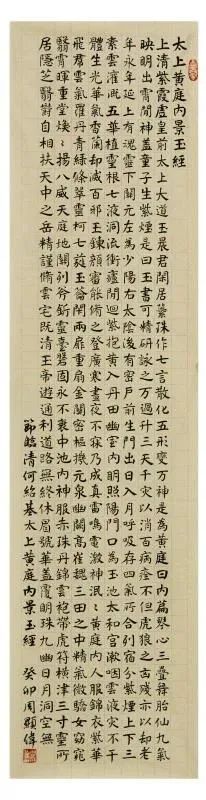 太上黃庭內景玉經
上清紫霞虛皇前太上大道玉晨君閑居蘂珠作七言散化五形變萬神是為黃庭曰內篇琴心三疊舞胎仙九氣
映明出霄間神蓋童子生紫煙是曰玉書可精研詠之萬過升三天千灾以消百病痊不但虎狼之凶殘亦以却老
年永延上有魂靈下關元左為少陽右太陰後有密戶前生門出日入月呼吸存四氣所合列宿分紫煙上下三
素雲灌溉五華植靈根七液洞流衝廬間迴紫抱黃入丹田幽室內明照陽門口為玉池太和宮漱咽靈液灾不干
體生光華氣香蘭却滅百邪玉鍊顏審能脩之登廣寒晝夜不寐乃成真雷鳴電激神泯〻黃庭內人服錦衣紫華
飛羣雲氣羅丹青綠條翠靈柯七蕤玉籥閉兩扉重扇金關密樞機元泉幽闕高崔巍三田之中精氣微嬌女窈窕
翳霄暉重堂煥〻揚八威天庭地關列斧斨靈臺磐固永不衰中池內神服赤珠丹錦雲袍帶虎符橫津三寸靈所
居隱芝翳鬱自相扶天中之岳精謹脩雲宅既清玉帝遊通利道路無終休眉號華蓋覆明珠九幽日月洞空無
節臨清何紹基太上黃庭內景玉經 癸卯周顯偉